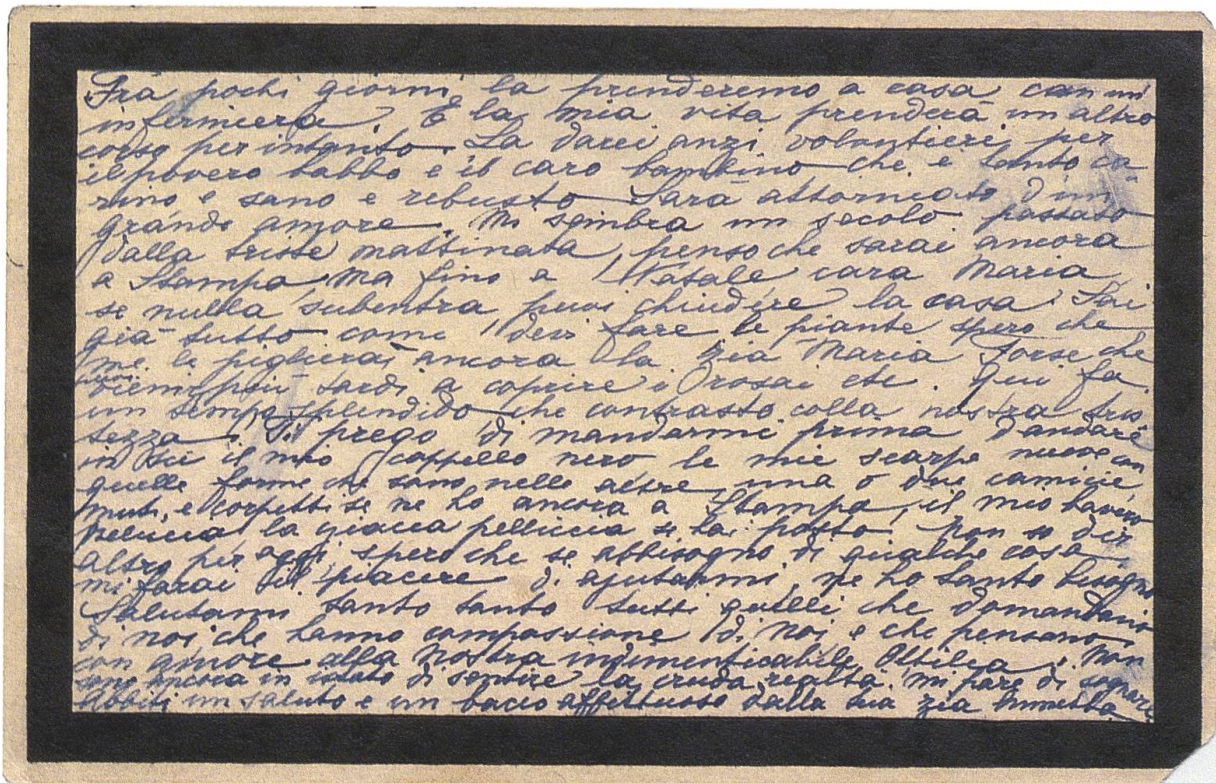 Frà pochi giorni la prenderemo a casa con un'
infermiera. E la mia vita prenderà un altro
corso per intanto. La darei anzi volontieri per
il povero babbo e il caro bambino che è tanto ca-
rino e sano e robusto Sarà attorniato d'un
grande amore. Mi sembra un secolo passato
dalla triste mattinata, penso che sarai ancora
a Stampa, ma fino a Natale cara Maria,
se nulla subentra puoi chiudere la casa. Sai
già tutto come devi fare le piante spero che
me le piglierai ancora la zia Maria Forse che
vieni più tardi a coprire i rosai etc. Qui fa
un tempo splendido che contrasta colla nostra tris-
tezza. Ti prego di mandarmi prima d'andare
in il mio cappello nero le mie scarpe nuove con
quelle forme che sono nelle altre, una o due camicie
mut. e corpetti se ne ho ancora a Stampa, il mio
pelliccia la giacca pelliccia se hai posto. Non so dir
altro per oggi, spero che se abbisogno di qualche cosa
mi farai il piacere di ajutarmi, ne ho tanto bisogno
Salutami tanto tanto tutti quelli che domandano
di noi che hanno compassione di noi e che pensano
con amore alla nostra indimenticabile Ottilia. Non
sono ancora in istato di sentire la cruda realtà. Mi pare di sognare
Abbiti un saluto e un bacio affettuoso dalla tua zia Annetta